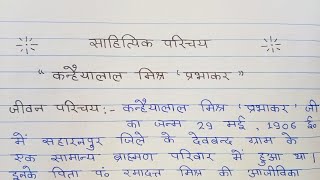 साहित्यिक परिचय
“ कन्हैयालाल मिश्र ‘प्रभाकर’ ”
जीवन परिचय:- कन्हैयालाल मिश्र ‘प्रभाकर’ जी
का जन्म 29 मई, 1906 ई०
में सहारनपुर जिले के देवबन्द ग्राम के
एक सामान्य ब्राह्मण परिवार में हुआ था।
इनके पिता पं० रमादत्त मिश्र की आजीविका